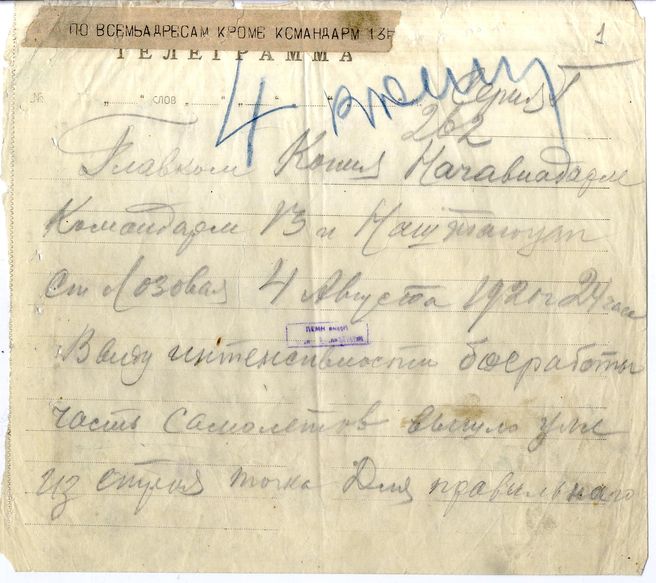 ПО ВСЕМЬАДРЕСАМ КРОМЕ КСМАНДАРМ 13
1
ТЕЛЕГРАММА
№ " " слов " "
4
Серия Г
262
Главком Копия Начавиадарм
Командарм 13 и Наштаюзап
ст Лозовая 4 Августа 1920 г 24 часа
Ввиду интенсивности боеработы
часть самолетов вышло уже
из строя точка Для правильного